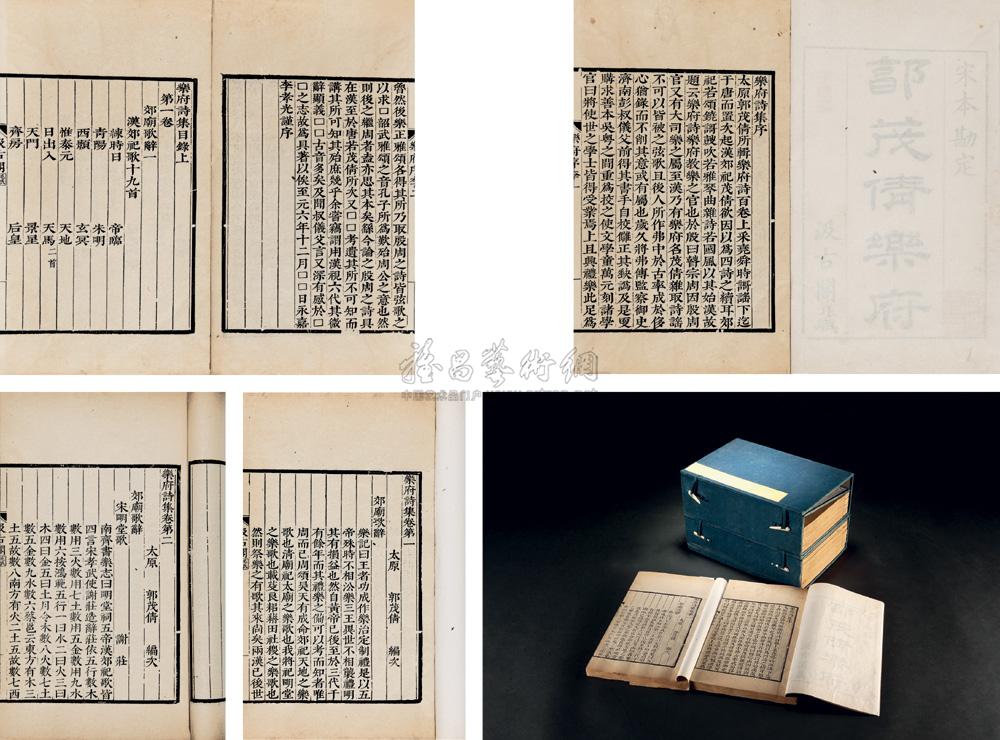 宋本勘定
郭茂倩樂府
汲古閣藏
樂府詩集序
太原郭茂倩所輯樂府詩百卷上采堯舜時謌謡下迄
于唐而置次起漢郊祀茂倩欲因以為四詩之續耳郊
祀若頌鐃謌鼓吹若雅琴曲雜詩若國風以其始漢故
題云樂府詩樂府教樂之官也於殷曰瞽宗周因殷周
官又有大司樂之屬至漢乃有樂府名茂倩雜取詩謡
不可以皆被之弦歌且後人所作弗中於古率成於侈
心猶錄而不削其意或有屬也歲久將弗傳監察御史
濟南彭叔儀父前得其書手自校讎正其缺譌及是更
購求善本吳粤之間重為挍之使文學童萬元刻諸學
官曰將使世之學士皆得受業焉上且興禮樂此足為
魯然後樂正雅頌各得其所乃取殷周之詩皆弦歌之
以求□韶武雅頌之音孔子所為歎殆周公之意也然
則後之繼周者盍亦思其本矣繇今論之殷周之詩具
在漢至於唐若茂倩所次又□□考遺其所不可知而
講其所可知其殆庶幾乎余嘗竊謂用漢視六代其徵
辭顯義□□古音多矣及聞叔儀父言又深有感於□
□之志故為具著以俟至元六年十二月□□日永嘉
李孝光謹序
樂府詩集目錄上
第一卷
郊廟歌辭一
漢郊祀歌十九首
練時日
帝臨
青陽
朱明
西顥
玄冥
惟泰元
天地
日出入
天馬二首
天門
景星
齊房
后皇
樂府詩集卷第一
太原 郭茂倩 編次
郊廟歌辭
樂記曰王者功成作樂治定制禮是以五
帝殊時不相㳂樂三王異世不相襲禮明
其有損益也然自黃帝已後至於三代千
有餘年而其禮樂之備可以考而知者唯
周而已周頌昊天有成命郊祀天地之樂
歌也清廟祀太廟之樂歌也我將祀明堂
之樂歌也載芟良耜藉田社稷之樂歌也
然則祭樂之有歌其來尚矣兩漢已後世
樂府詩集卷第二
太原 郭茂倩 編次
郊廟歌辭
宋明堂歌 謝莊
南齊書樂志曰明堂祠五帝漢郊祀歌皆
四言宋孝武使謝莊造辭莊依五行數木
數用三火數用七土數用五金數用九水
數用六按鴻範五行一曰水二曰火三曰
木四曰金五曰土月令木數八火數七土
數五金數九水數六蔡邕云東方有木三
土五故數八南方有火二土五故數七西